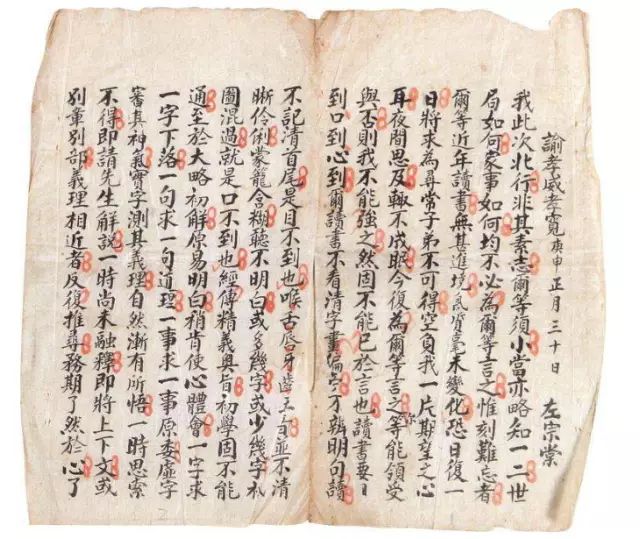 諭孝威孝寬庚申正月三十日 左宗棠
我此次北行非其素志爾等須小當亦略知一二世
局如何家事如何均不必為爾等言之惟刻難忘者
爾等近年讀書無甚進境氣質毫未變化恐日復一
日將求為尋常子弟不可得空負我一片期望之心
耳夜間思及輒不成眠今復為爾等言之爾等能領受
與否則我不能強之然固不能已於言也讀書要目
到口到心到爾讀書不看清字畫偏旁不辨明句讀
不記清首尾是目不到也喉舌唇牙齒五音並不清
晰伶俐蒙籠含糊聽不明白或多幾字或少幾字衹
圖混過就是口不到也經傳精義奧旨初學固不能
通至於大略初解原易明白稍肯使心體會一字求
一字下落一句求一句道理一事求一事原委虛字
審其神氣實字測其義理自然漸有所悟一時思索
不得即請先生解說一時尚未融釋即將上下文或
別章別部義理相近者反復推尋務期了然於心了